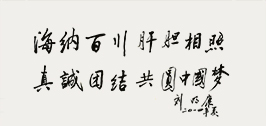 海纳百川肝胆相照
真誠团结共圆中國梦